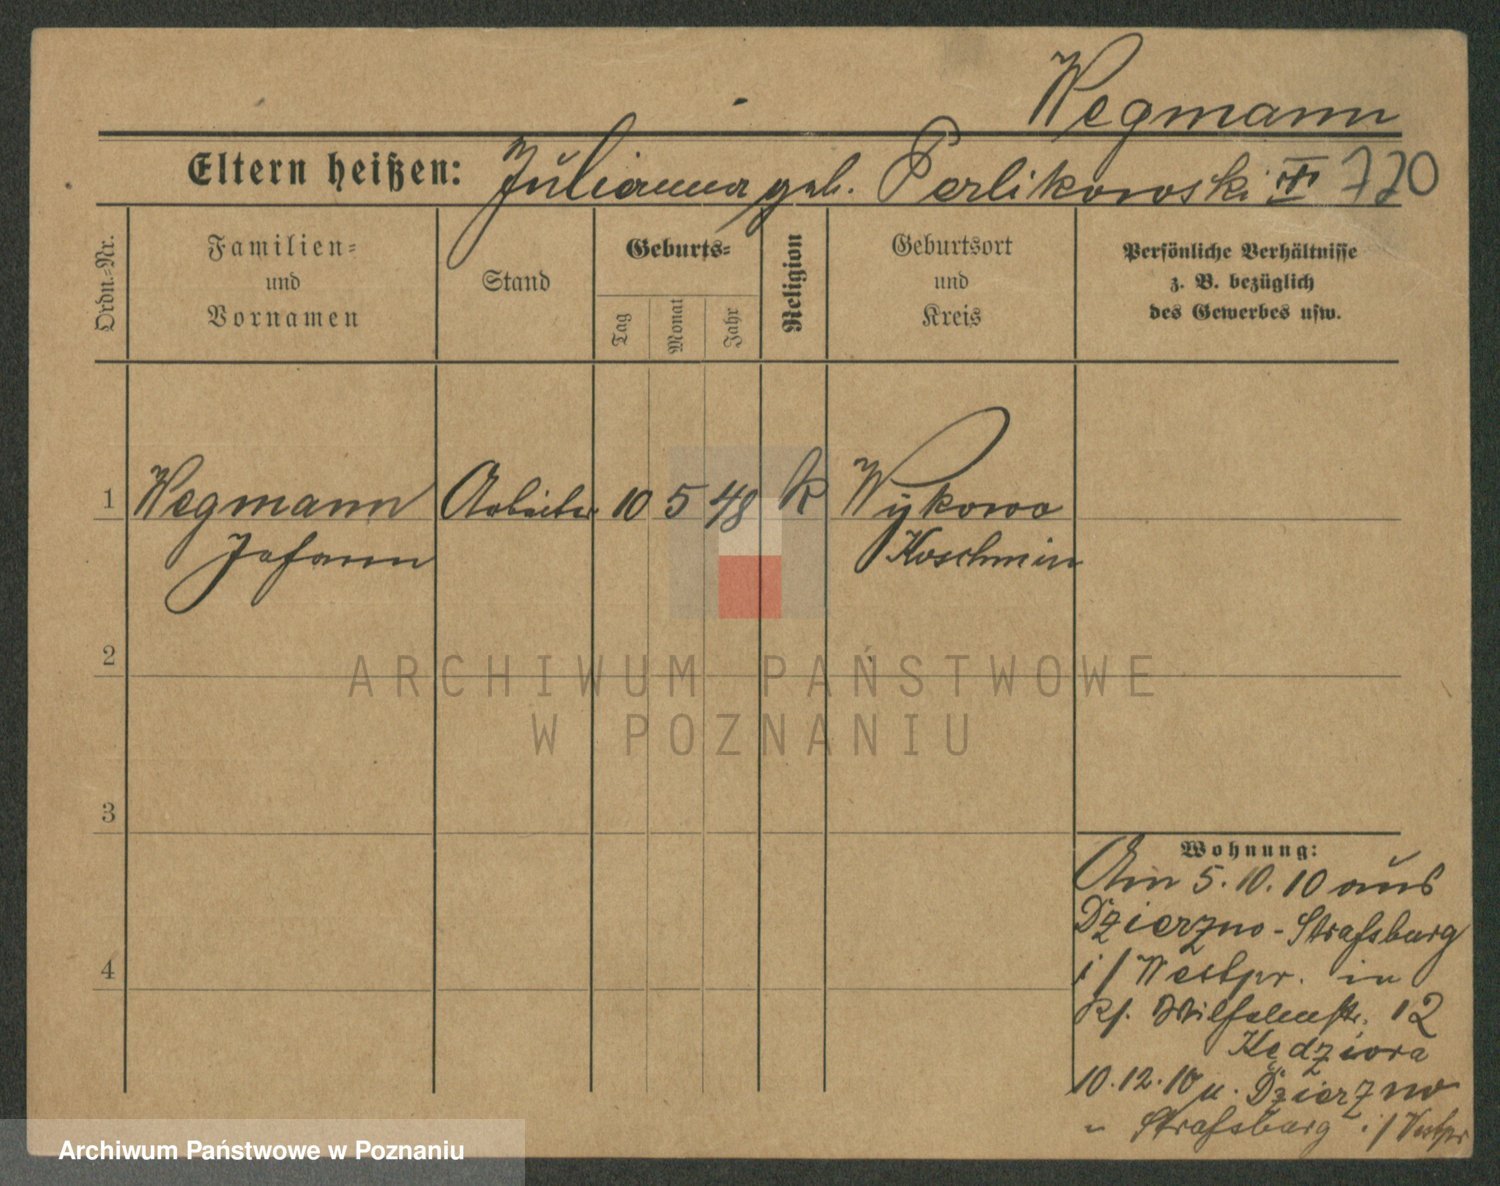 Wegmann
Eltern heißen: Julianna geb. Perlikowski III 770
Ordn.-Nr.
Familien-
und
Vornamen
Stand
Geburts-
Tag
Monat
Jahr
Religion
Geburtsort
und
Kreis
Persönliche Verhältnisse
z. B. bezüglich
des Gewerbes usw.
1 Wegmann Arbeiter 10 5 48 k Wykowo
Johann Koschmin
2
3
4
Wohnung:
Am 5.10.10 aus
Dzierzno - Strasburg
i/Westpr. in
Wilhelmstr. 12
Kędziora
10.12.10 n. Dzierzno
Strasburg i/Westpr
ARCHIWUM PAŃSTWOWE
W POZNANIU
Archiwum Państwowe w Poznaniu